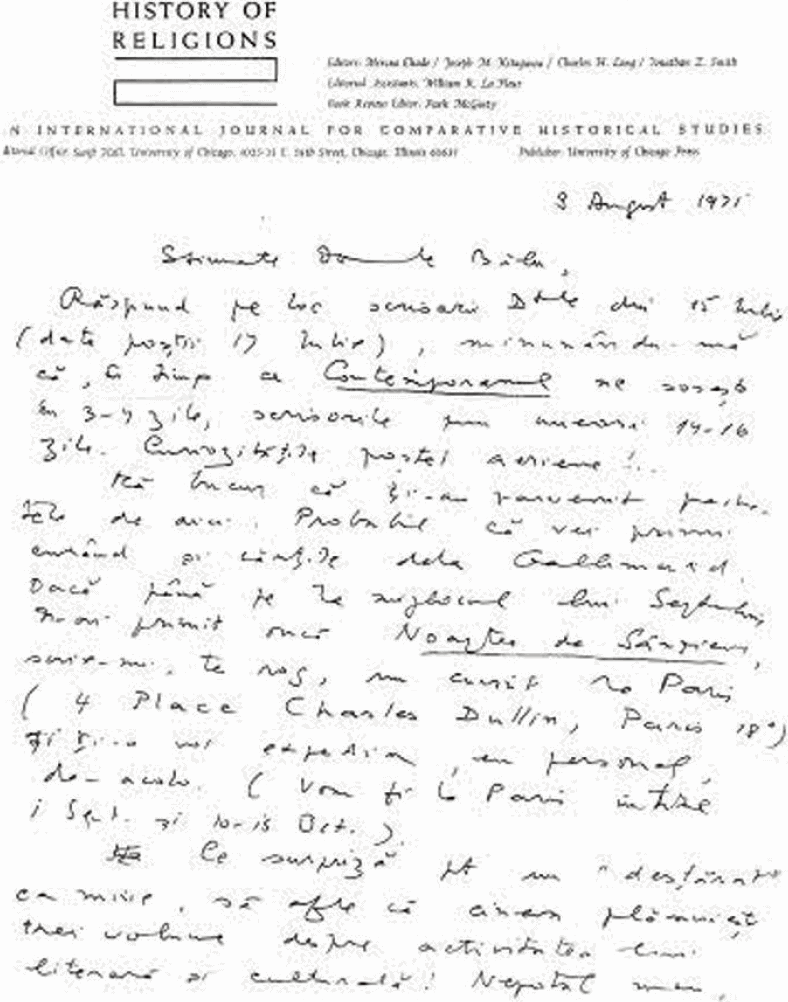 HISTORY OF
RELIGIONS
Editors: Mircea Eliade / Joseph M. Kitagawa / Charles H. Long / Jonathan Z. Smith
Editorial Assistants: William R. La Fleur
Book Review Editor: Park McGinty
N INTERNATIONAL JOURNAL FOR COMPARATIVE HISTORICAL STUDIES
Editorial Office: Swift Hall, University of Chicago, 1025-35 E. 58th Street, Chicago, Illinois 60637 Publisher: University of Chicago Press
3 August 1971
Stimate Domnule Bălu,
Răspund pe loc scrisorii Dtale din 15 Iulie
(data poștii 17 Iulie), minunându-mă
că, în timp ce Contemporanul ne sosește
în 3-4 zile, scrisorile pun uneori 14-16
zile. Curiozitățile poștei aeriene!..
Mă bucur că ți-au parvenit pache-
tele de aici. Probabil că vei primi
curând și cărțile dela Gallimard.
Dacă până pe la mijlocul lui Septembrie
n-ai primit încă Noaptea de Sânziene,
scrie-mi, te rog, un cuvânt la Paris
(4 Place Charles Dullin, Paris 18e)
și ți-o voi expedia, eu personal,
de-acolo. (Vom fi la Paris între
1 Sept. și 10-15 Oct.)
Ce surpriză pt un "desțărat"
ca mine, să afle că cineva plănuiește
trei volume despre activitatea lui
literară și culturală! Nepotul meu,